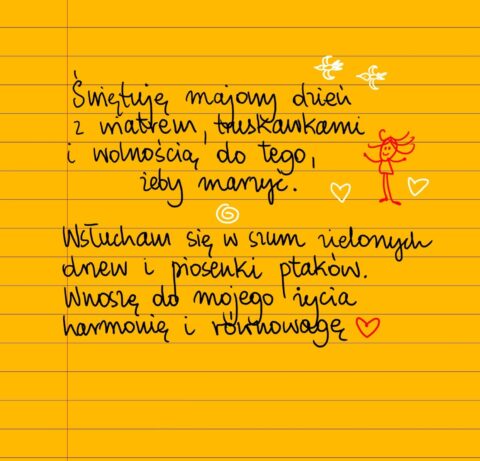 Świętuję majowy dzień
z wiatrem, truskawkami
i wolnością do tego,
żeby marzyć.
Wsłucham się w szum zielonych
drzew i piosenki ptaków.
Wnoszę do mojego życia
harmonię i równowagę